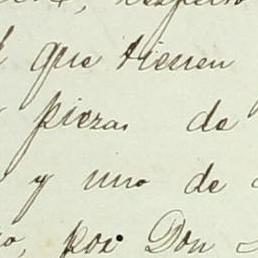 respecto
que tienen
piezas de
y uno de
por Don